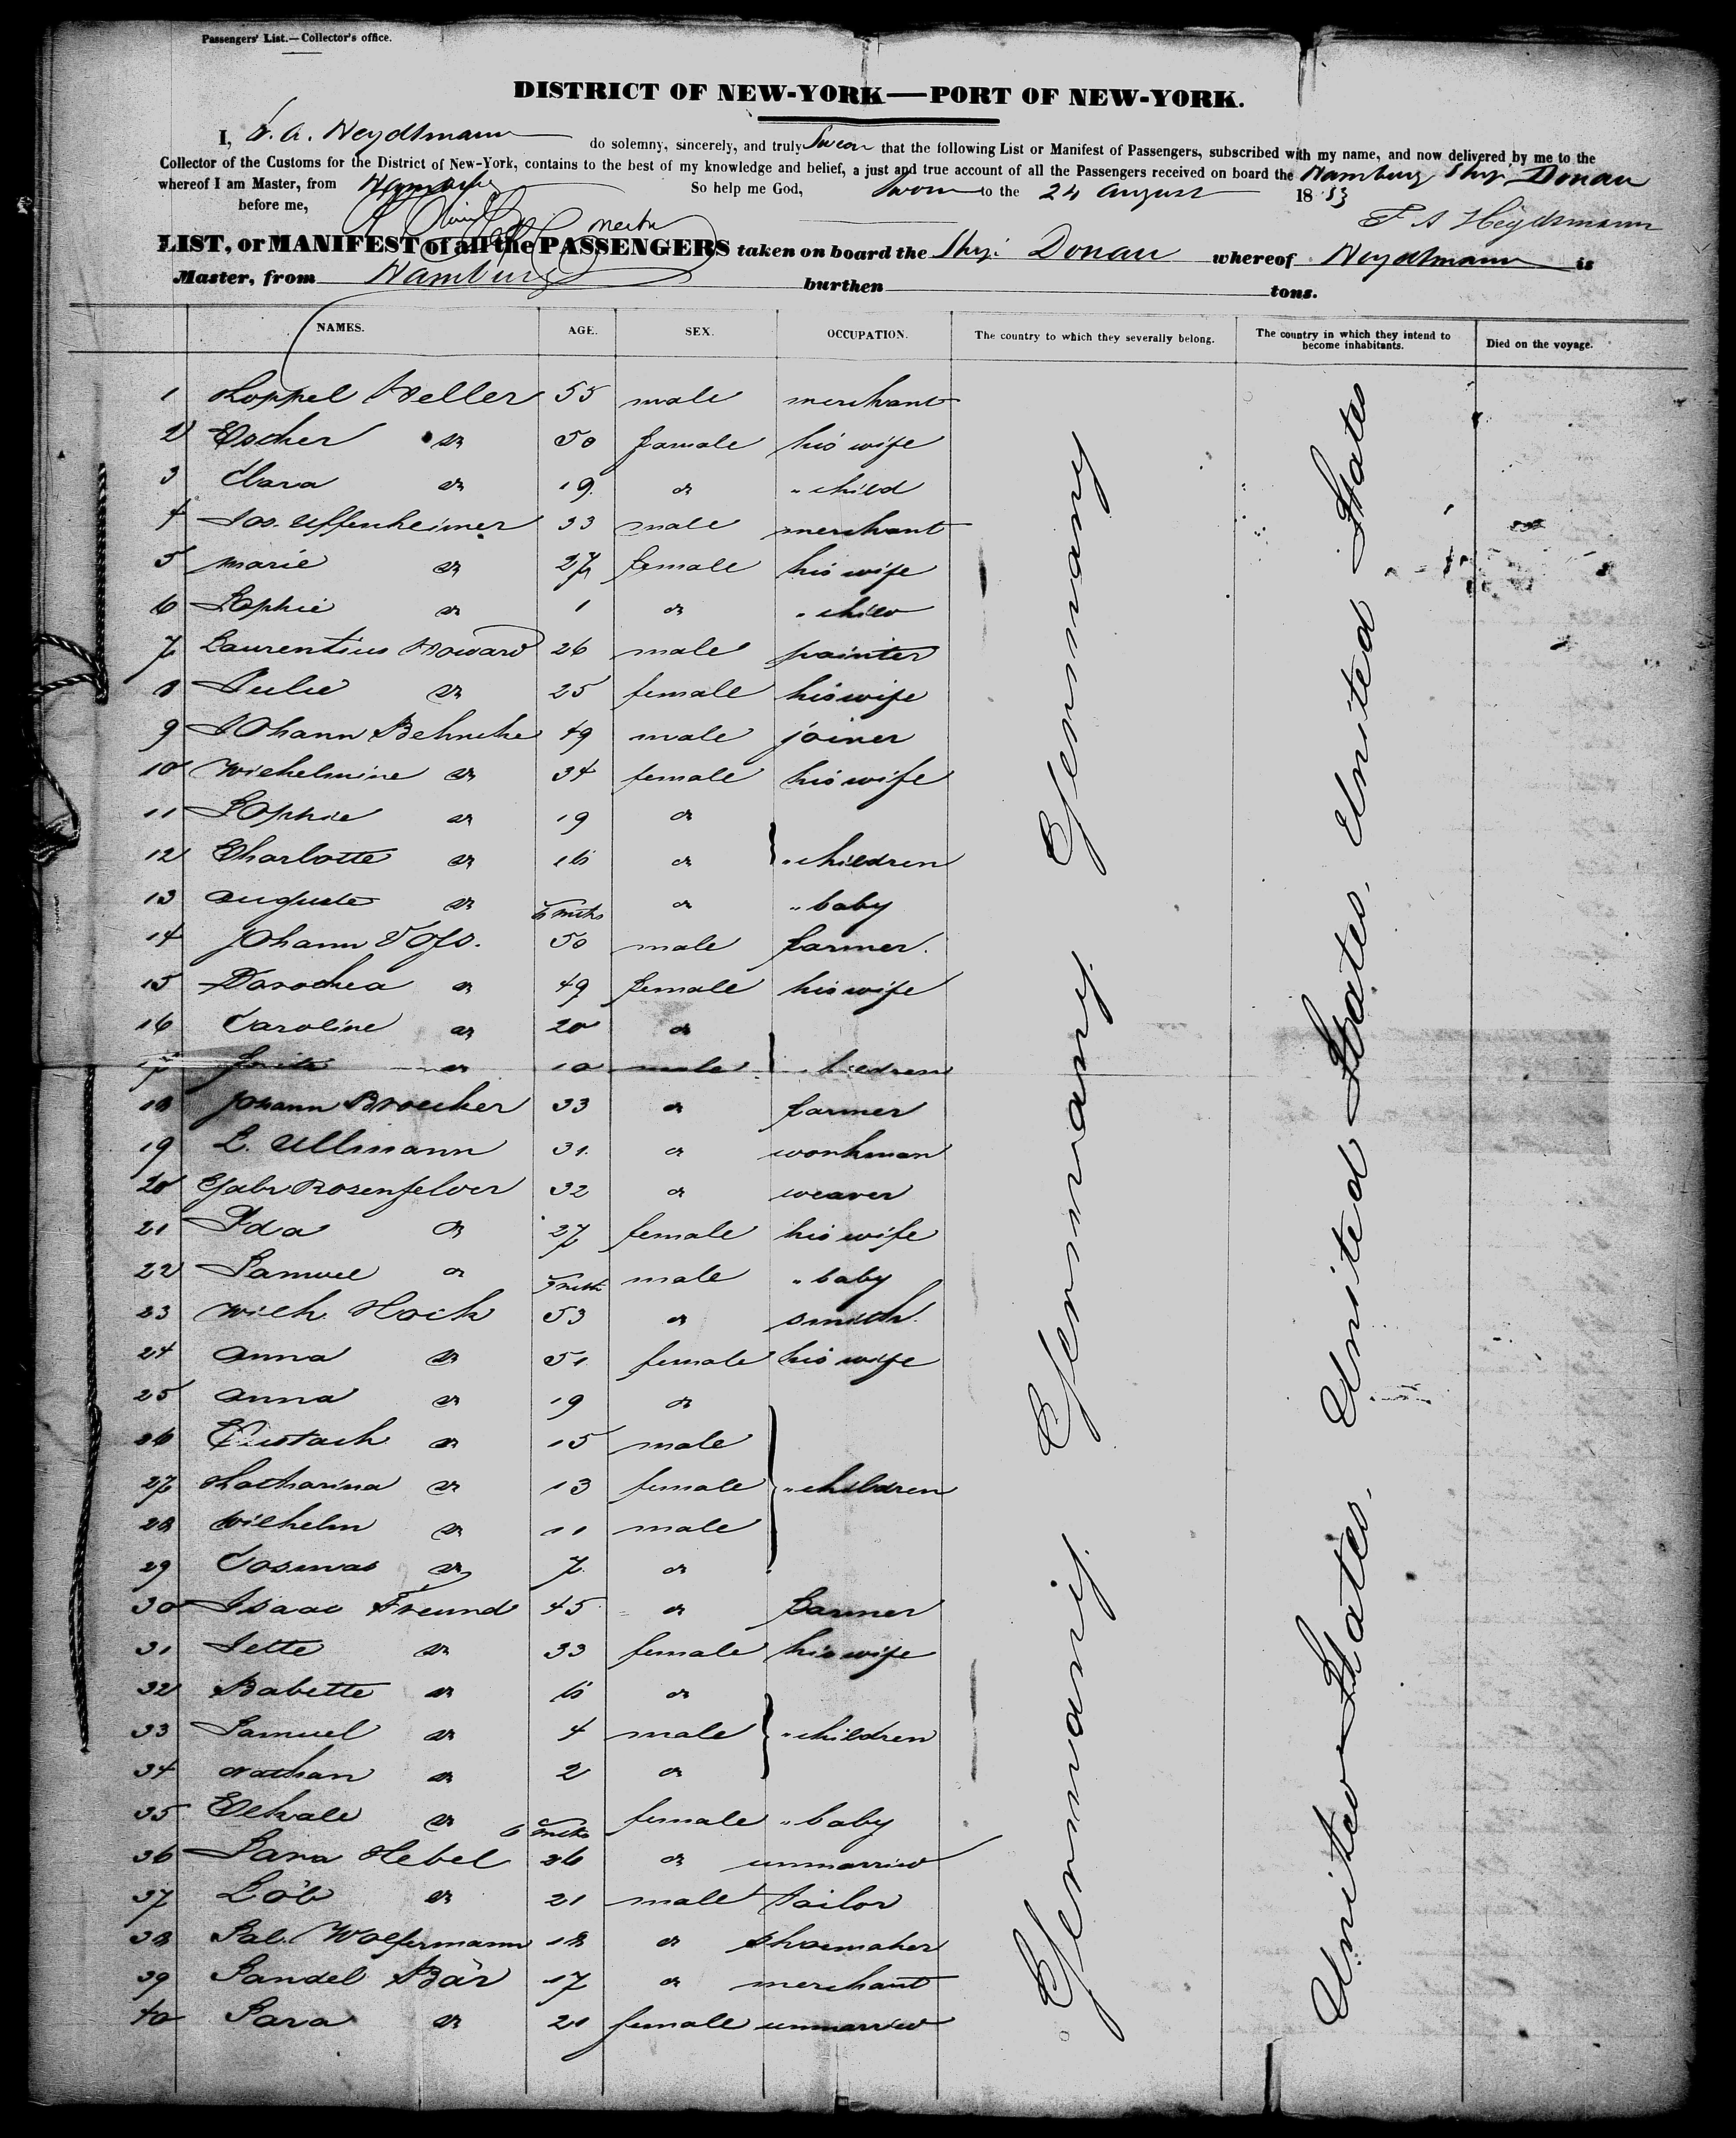 Passengers' List.—Collector's office.
DISTRICT OF NEW-YORK—PORT OF NEW-YORK.
I, Heydtmann do solemny, sincerely, and truly Swear that the following List or Manifest of Passengers, subscribed with my name, and now delivered by me to the
Collector of the Customs for the District of New-York, contains to the best of my knowledge and belief, a just and true account of all the Passengers received on board the Hamburg Ship Donau
whereof I am Master, from Hamburg So help me God, Sworn to the 24 August 1853
before me,
F A Heydtmann
LIST, or MANIFEST of all the PASSENGERS taken on board the Ship: Donau whereof Heydtmann is
Master, from Hamburg burthen tons.
NAMES. AGE. SEX. OCCUPATION. The country to which they severally belong. The country in which they intend to become inhabitants. Died on the voyage.
1 Koppel Heller 55 male merchant
2 Escher do 50 famale his wife
3 Clara do 19 do " child
4 Jos. Uffenheimer 33 male merchant
5 marie do 27 female his wife
6 Sophie do 1 do " child
7 Laurentius Howard 26 male painter
8 Julie do 25 female his wife
9 Johann Behncke 49 male joiner
10 Wilhelmine do 34 female his wife
11 Sophie do 19 do
12 Charlotte do 16 do " children
13 Auguste do 6 mths do " baby
14 Johann Voss. 50 male farmer.
15 Dorothea do 49 female his wife
16 Caroline do 20 do
17 Fritz do 10 male children
18 Johann Broecker 33 do farmer
19 L. Ullmann 31. do workman
20 Gabr Rosenfelder 32 do weaver
21 Ida do 27 female his wife
22 Samuel do mth male " baby
23 Wilh Hock 53 do smith.
24 Anna do 51. female his wife
25 Anna do 19 do
26 Eustach do 15 male
27 Katharina do 13 female " children
28 Wilhelm do 11 male
29 Cosmas do 7. do
30 Isaac Freund 45 do farmer
31 Jette do 33 female his wife
32 Babette do 6 do
33 Samuel do 4 male " children
34 Nathan do 2 do
35 do 6 mths female " baby
36 Sara Hebel 26 do unmarried
37 Löb do 21 male tailor
38 Sal. Wolfermann 18 do shoemaker
39 Sandel Bär 17 do merchant
40 Sara do 20 female unmarried
Germany Germany. Germany. Germany
United States. United States. United States